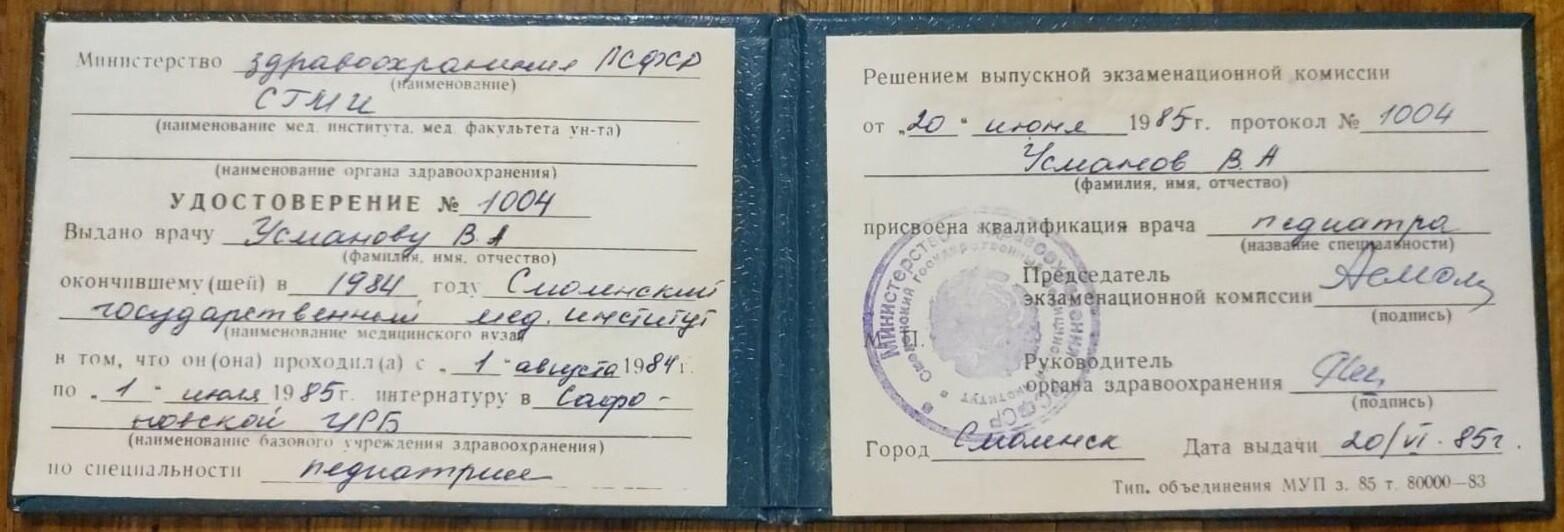 Министерство здравоохранения РСФСР
(наименование)
СГМИ
(наименование мед. института, мед. факультета ун-та)
(наименование органа здравоохранения)
УДОСТОВЕРЕНИЕ № 1004
Выдано врачу Усманову В.А
(фамилия, имя, отчество)
окончившему(шей) в 1984 году Смоленский
государственный мед. институт
(наименование медицинского вуза)
в том, что он(она) проходил(а) с „1“ августа 1984г.
по „1“ июля 1985г. интернатуру в Сафо-
новской ЦРБ
(наименование базового учреждения здравоохранения)
по специальности педиатрия
Решением выпускной экзаменационной комиссии
от „20“ июня 1985г. протокол № 1004
Усманов В.А
(фамилия, имя, отчество)
присвоена квалификация врача педиатра
(название специальности)
Председатель
экзаменационной комиссии
(подпись)
М. П.
Руководитель
органа здравоохранения
(подпись)
Министерство здравоохранения РСФСР
Смоленский государственный медицинский институт
Город Смоленск Дата выдачи 20/VI-85г.
Тип. объединения МУП з. 85 т. 80000—83